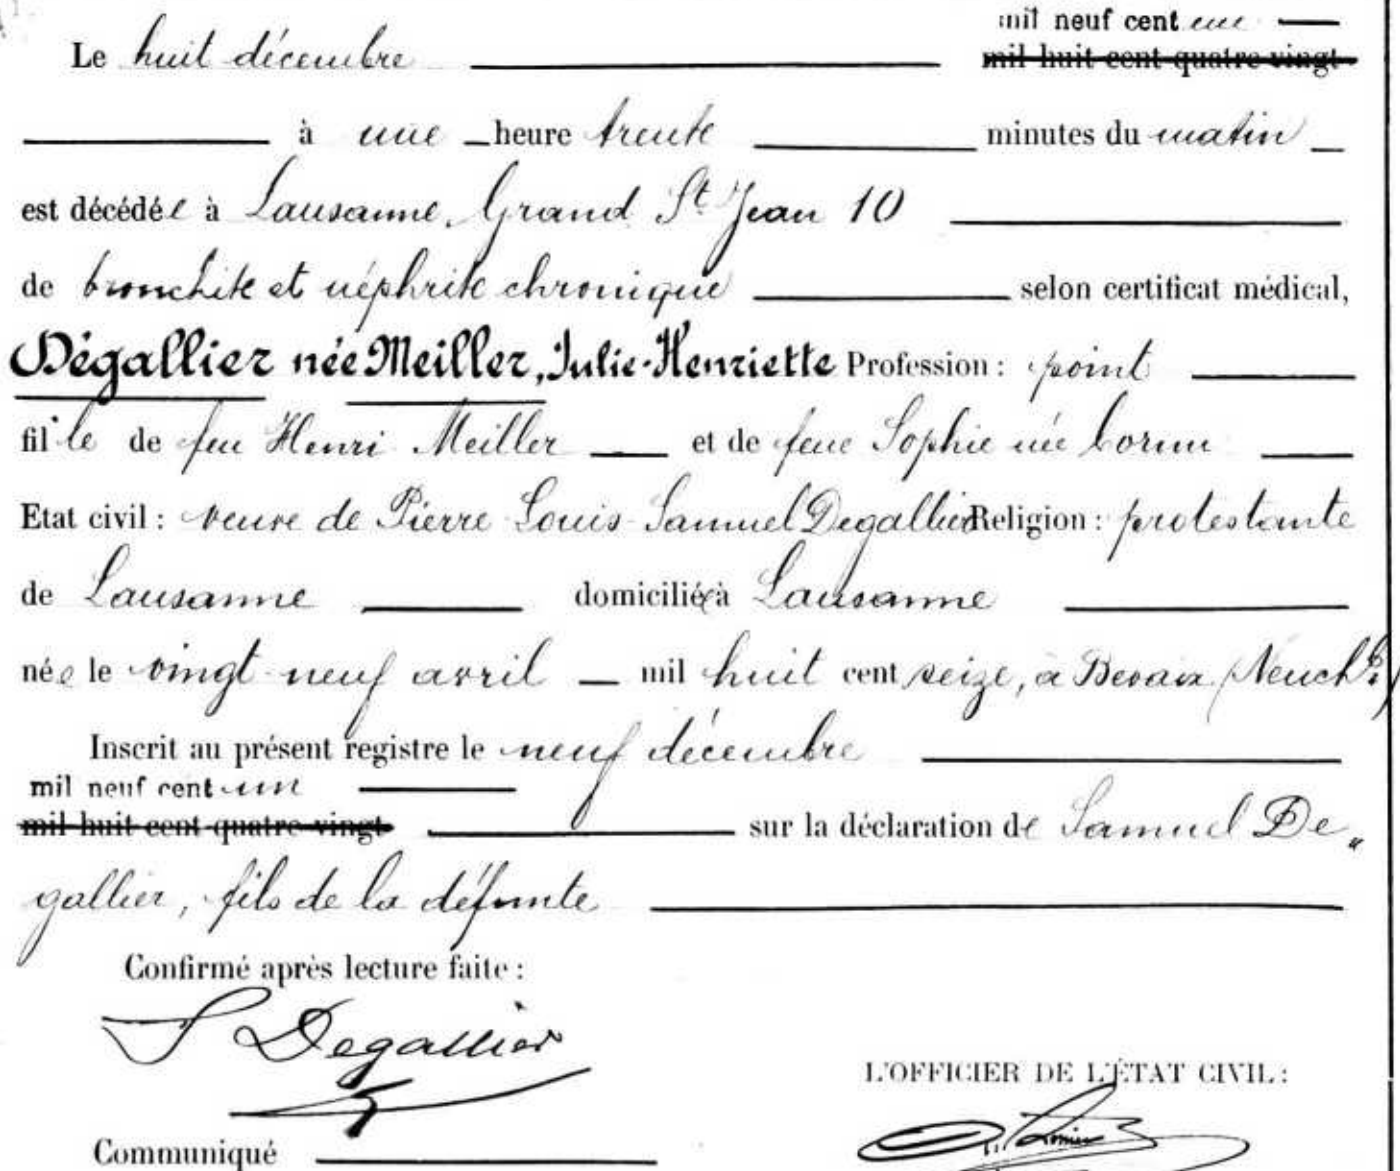 mil neuf cent une
Le huit décembre mil huit cent quatre vingt
à une heure trente minutes du matin
est décédée à Lausanne, Grand St Jean 10
de bronchite et néphrite chronique selon certificat médical,
Dégallier née Meiller, Julie-Henriette Profession : point
fille de feu Henri Meiller et de feue Sophie née
Etat civil : veuve de Pierre Louis Samuel Degallier Religion : protestante
de Lausanne domiciliée à Lausanne
née le vingt neuf avril mil huit cent seize, à Bevaix (Neuchl.)
Inscrit au présent registre le neuf décembre
mil neuf cent un
mil huit cent quatre vingt sur la déclaration de Samuel De„
gallier, fils de la défunte
Confirmé après lecture faite :
S Degallier
L'OFFICIER DE L'ÉTAT CIVIL :
Communiqué